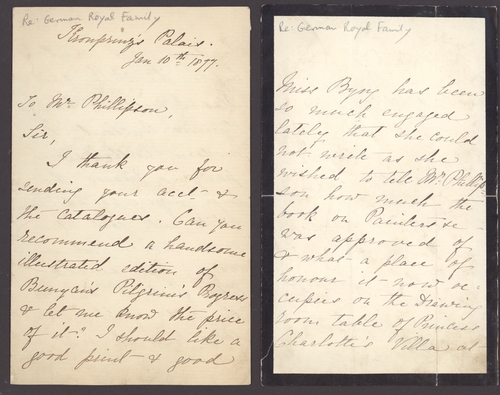 Re: German Royal Family
Kronprinz's Palais.
Jan 10th 1877.
To Mr Phillipson,
Sir,
I thank you for
sending your acct- &
the catalogues. Can you
recommend a handsome
illustrated edition of
Bunyan's Pilgrim's Progress
& let me know the price
of it? I should like a
good print & good
Re: German Royal Family
Miss Byng has been
so much engaged
lately that she could
not write as she
wished to tell Mr. Phillip-
son how much the
book on Painters &c
was approved of
& what a place of
honour it now oc-
cupies on the Drawing
room table of Princess
Charlotte's Villa at